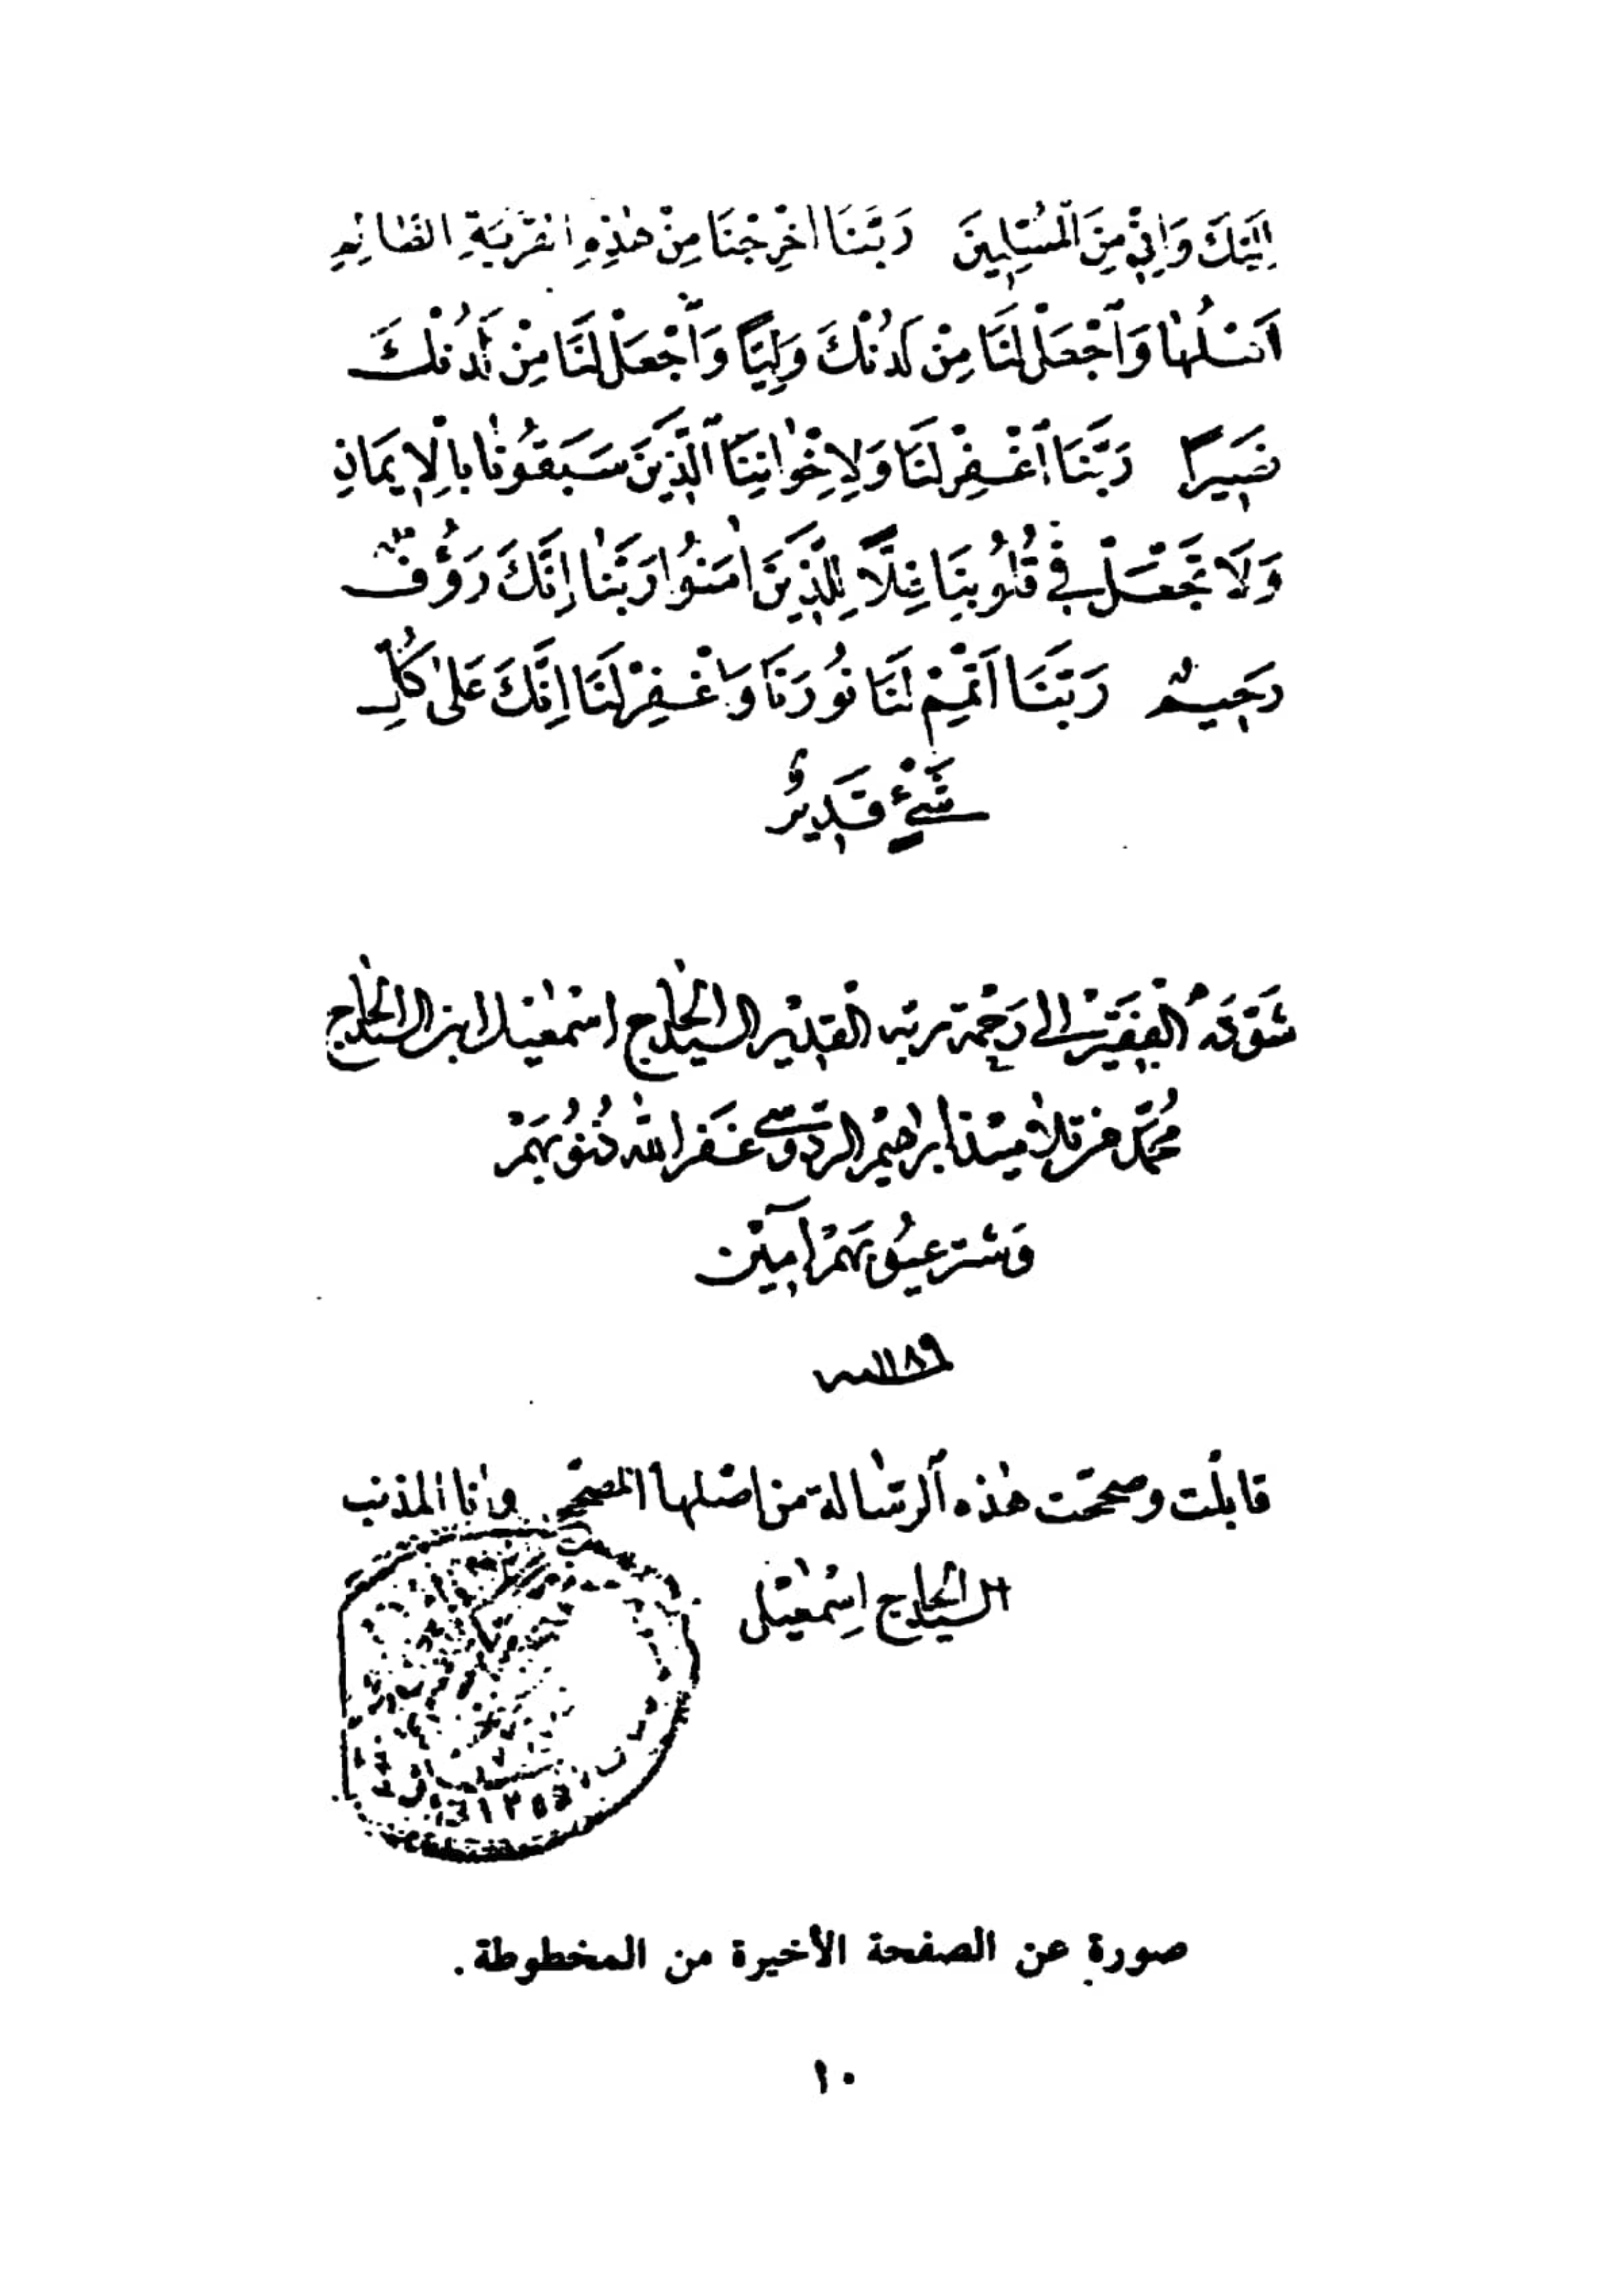 اِلَيْكَ وَاِنّٖى مِنَ الْمُسْلِمٖينَ رَبَّنَا اَخْرِجْنَا مِنْ هٰذِهِ الْقَرْيَةِ الظَّالِمِ
اَهْلُهَا وَاجْعَلْ لَنَا مِنْ لَدُنْكَ وَلِيًّا وَاجْعَلْ لَنَا مِنْ لَدُنْكَ
نَصٖيرًا رَبَّنَا اغْفِرْ لَنَا وَلِاِخْوَانِنَا الَّذٖينَ سَبَقُونَا بِالْاٖيمَانِ
وَلَا تَجْعَلْ فٖى قُلُوبِنَا غِلًّا لِلَّذٖينَ اٰمَنُوا رَبَّنَا اِنَّكَ رَؤُفٌ
رَحٖيمٌ رَبَّنَا اَتْمِمْ لَنَا نُورَنَا وَاغْفِرْ لَنَا اِنَّكَ عَلٰى كُلِّ
شَىْءٍ قَدٖيرٌ
الفقير الى رحمة ربه القدير السيد الحاج اسمعيل ابن السيد الحاج
محمد ابراهيم غفر الله ذنوبهم
وستر عيوبهم آمين
١١٨٩
قابلت وصححت هذه الرسالة من اصلها المصحح وانا المذنب
السيد الحاج اسمعيل
صورة عن الصفحة الأخيرة من المخطوطة.
١٠